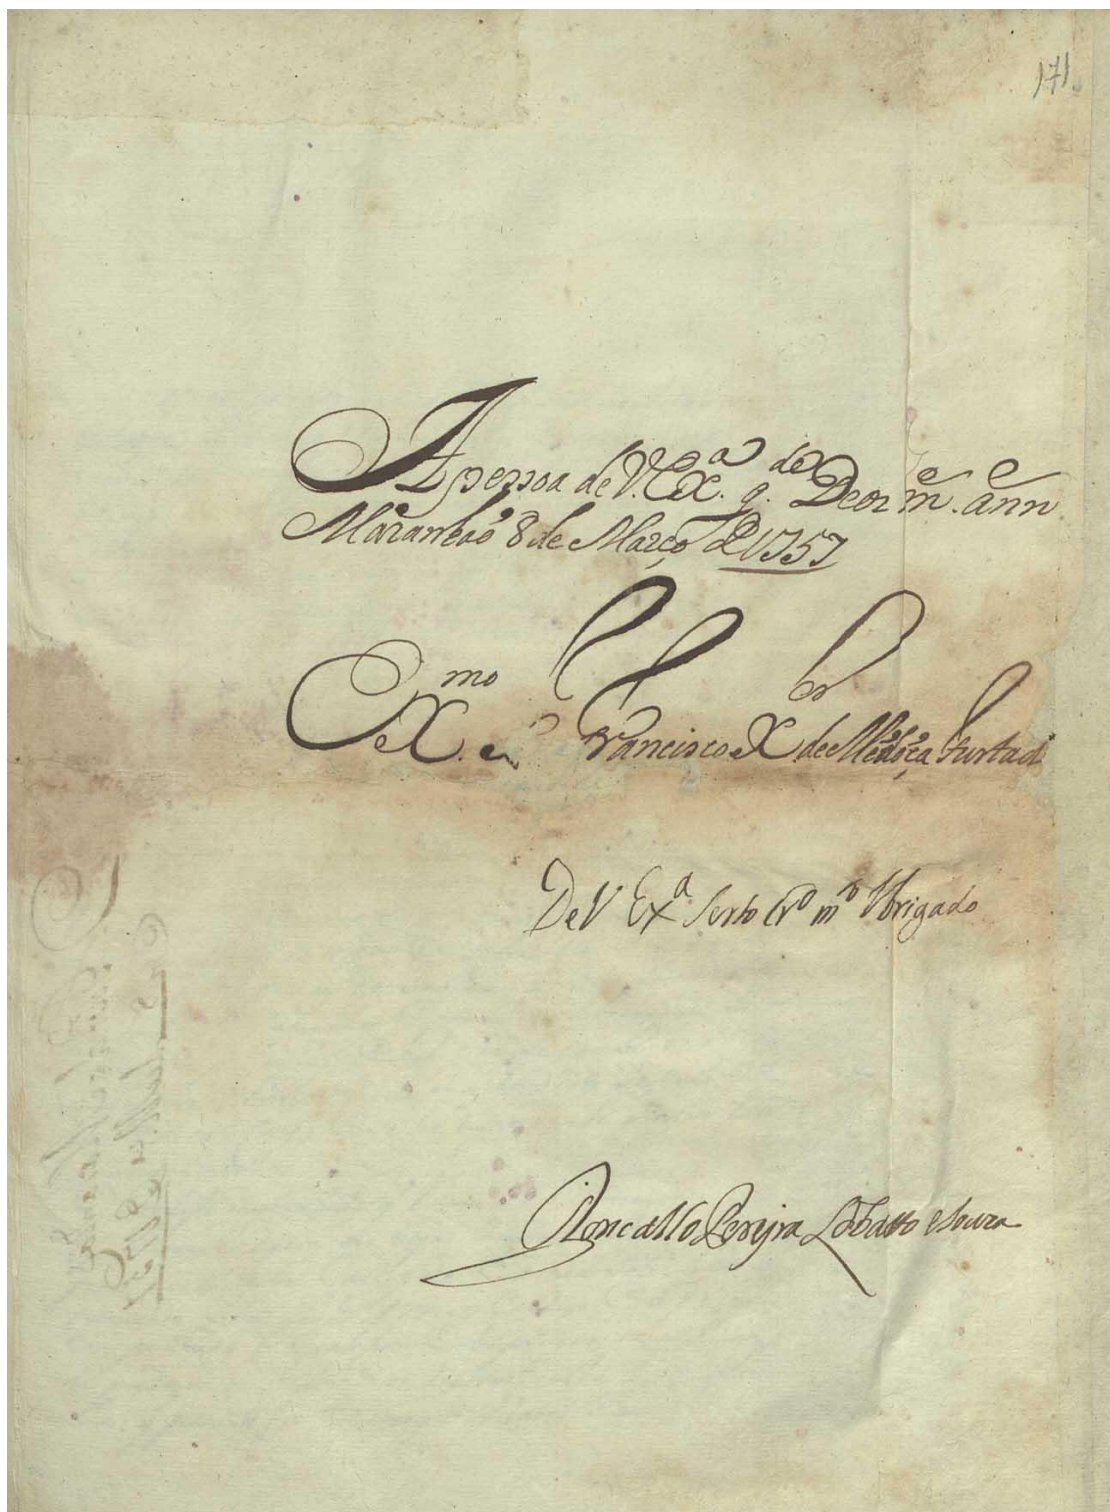 171
A pessoa de V. Exª. g.de Deos m.e ann
Maranhaõ 8 de Março de 1757
Exmo. Francisco X.er de Mẽdoça Furtad
De V Exª Serto Cro mto Obrigado
Goncallo Pereyra Lobatto e Souza